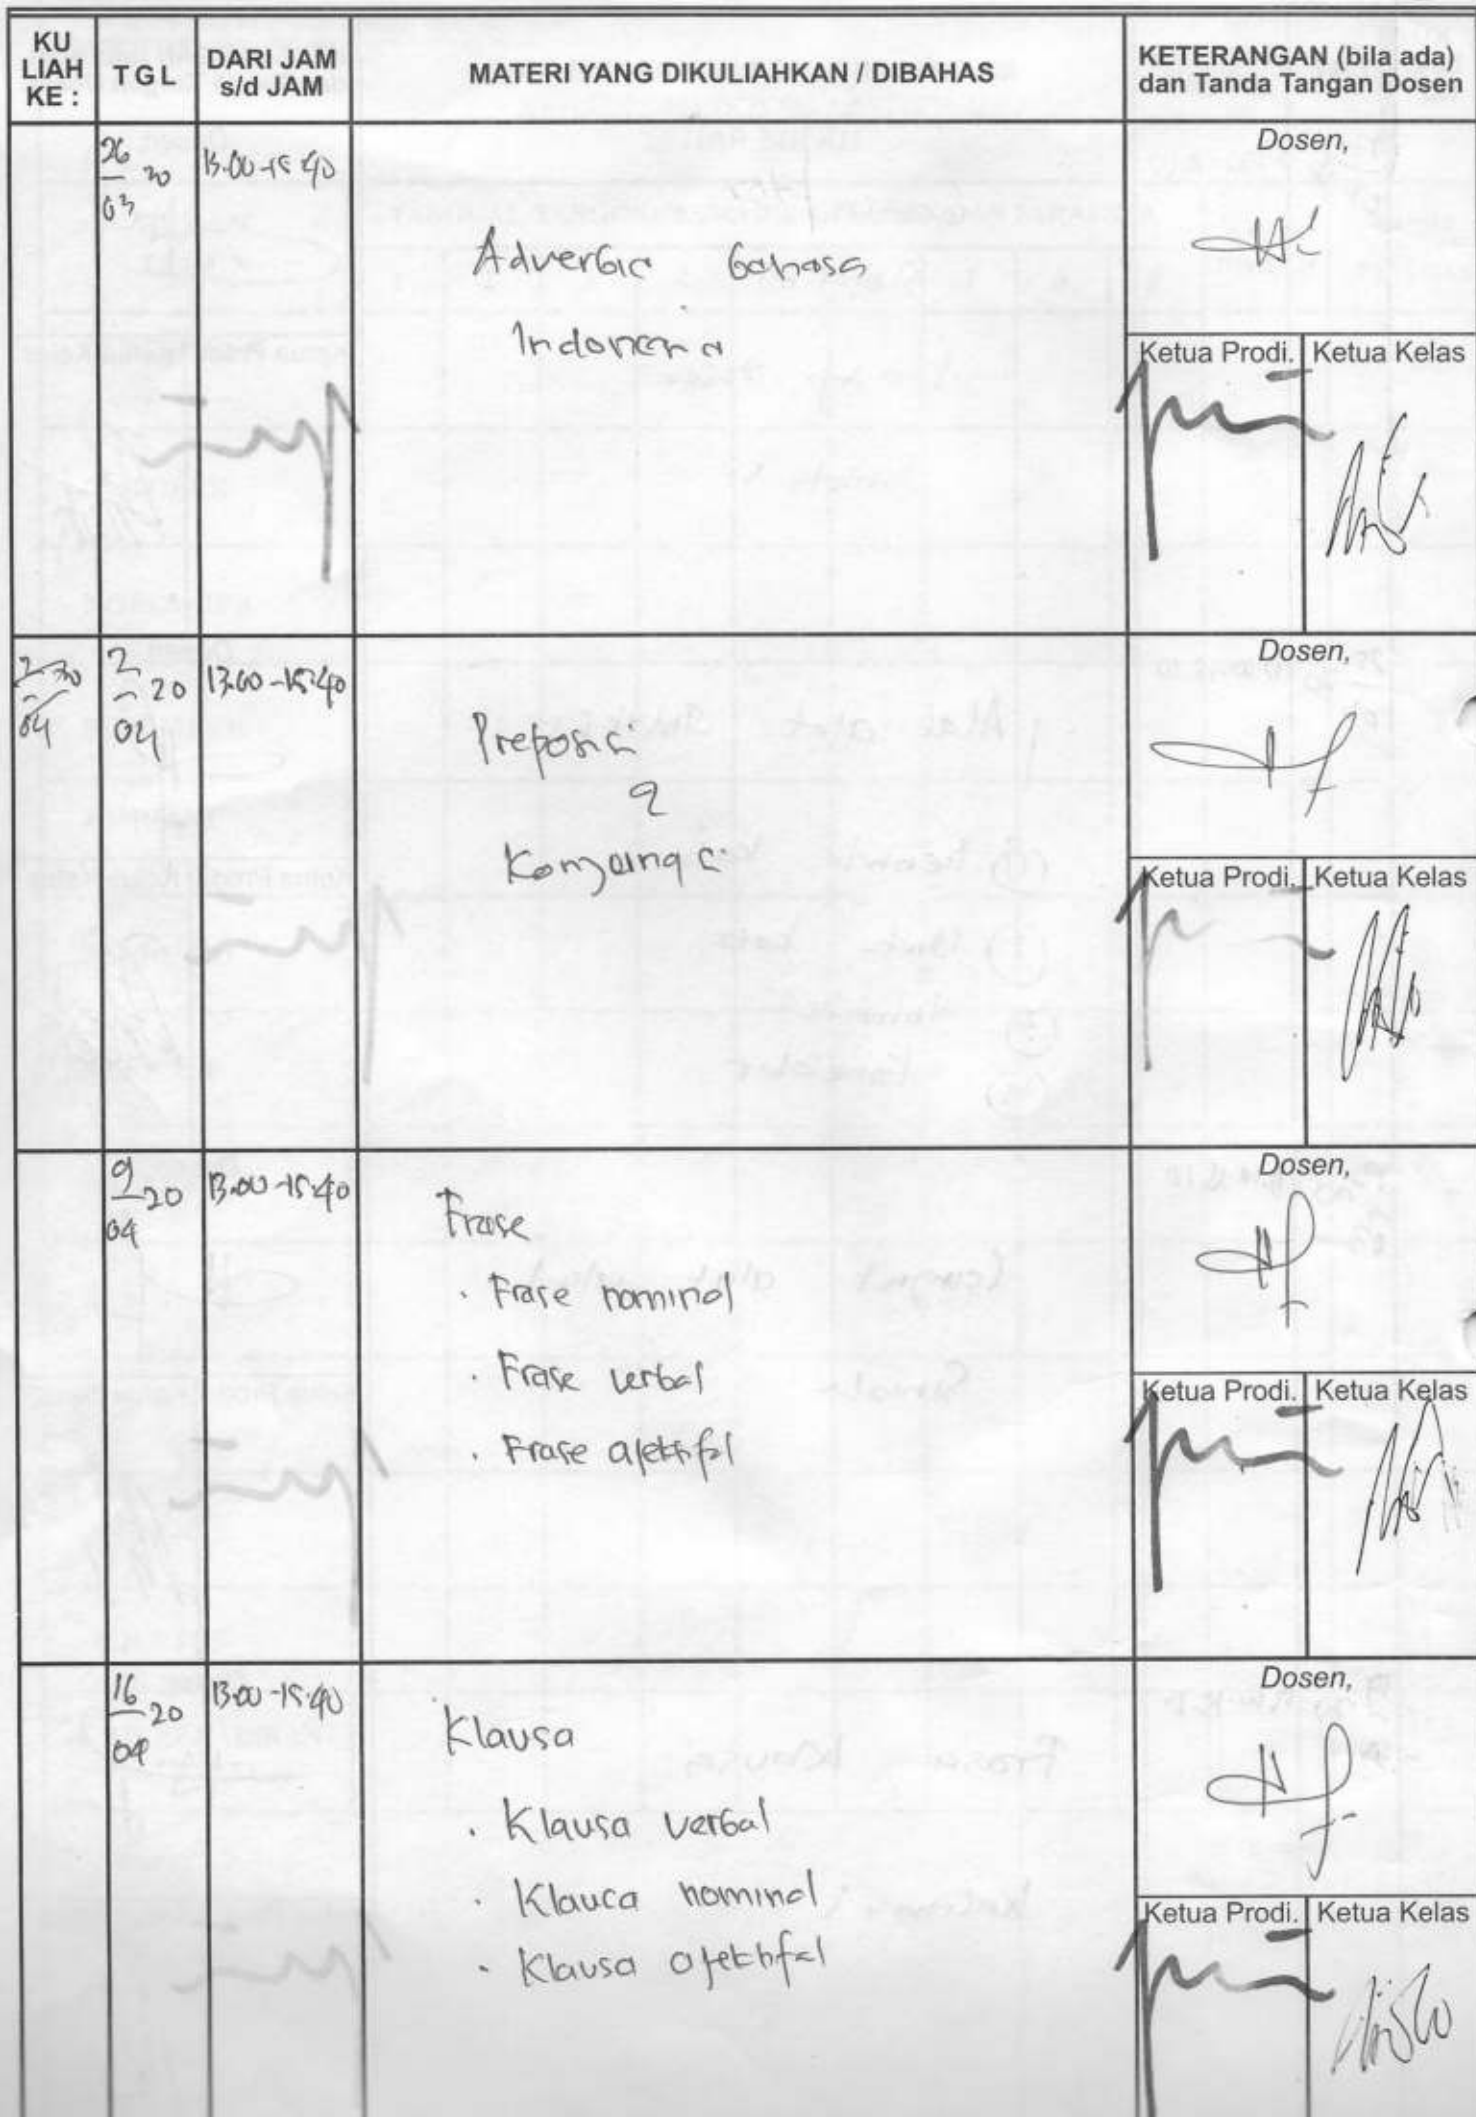 KU LIAH KE :
TGL
DARI JAM s/d JAM
MATERI YANG DIKULIAHKAN / DIBAHAS
KETERANGAN (bila ada) dan Tanda Tangan Dosen
26/03 20
13.00-15.40
Adverbia bahasa
Indonesia
Dosen,
Ketua Prodi.
Ketua Kelas
2/04 20
2/04 20
13.00-15.40
Preposisi
&
Konjungsi
Dosen,
Ketua Prodi.
Ketua Kelas
9/04 20
13.00-15.40
Frase
. Frase nominal
. Frase verbal
. Frase ajektifal
Dosen,
Ketua Prodi.
Ketua Kelas
16/04 20
13.00-15.40
Klausa
. Klausa verbal
. Klausa nominal
. Klausa ajektifal
Dosen,
Ketua Prodi.
Ketua Kelas